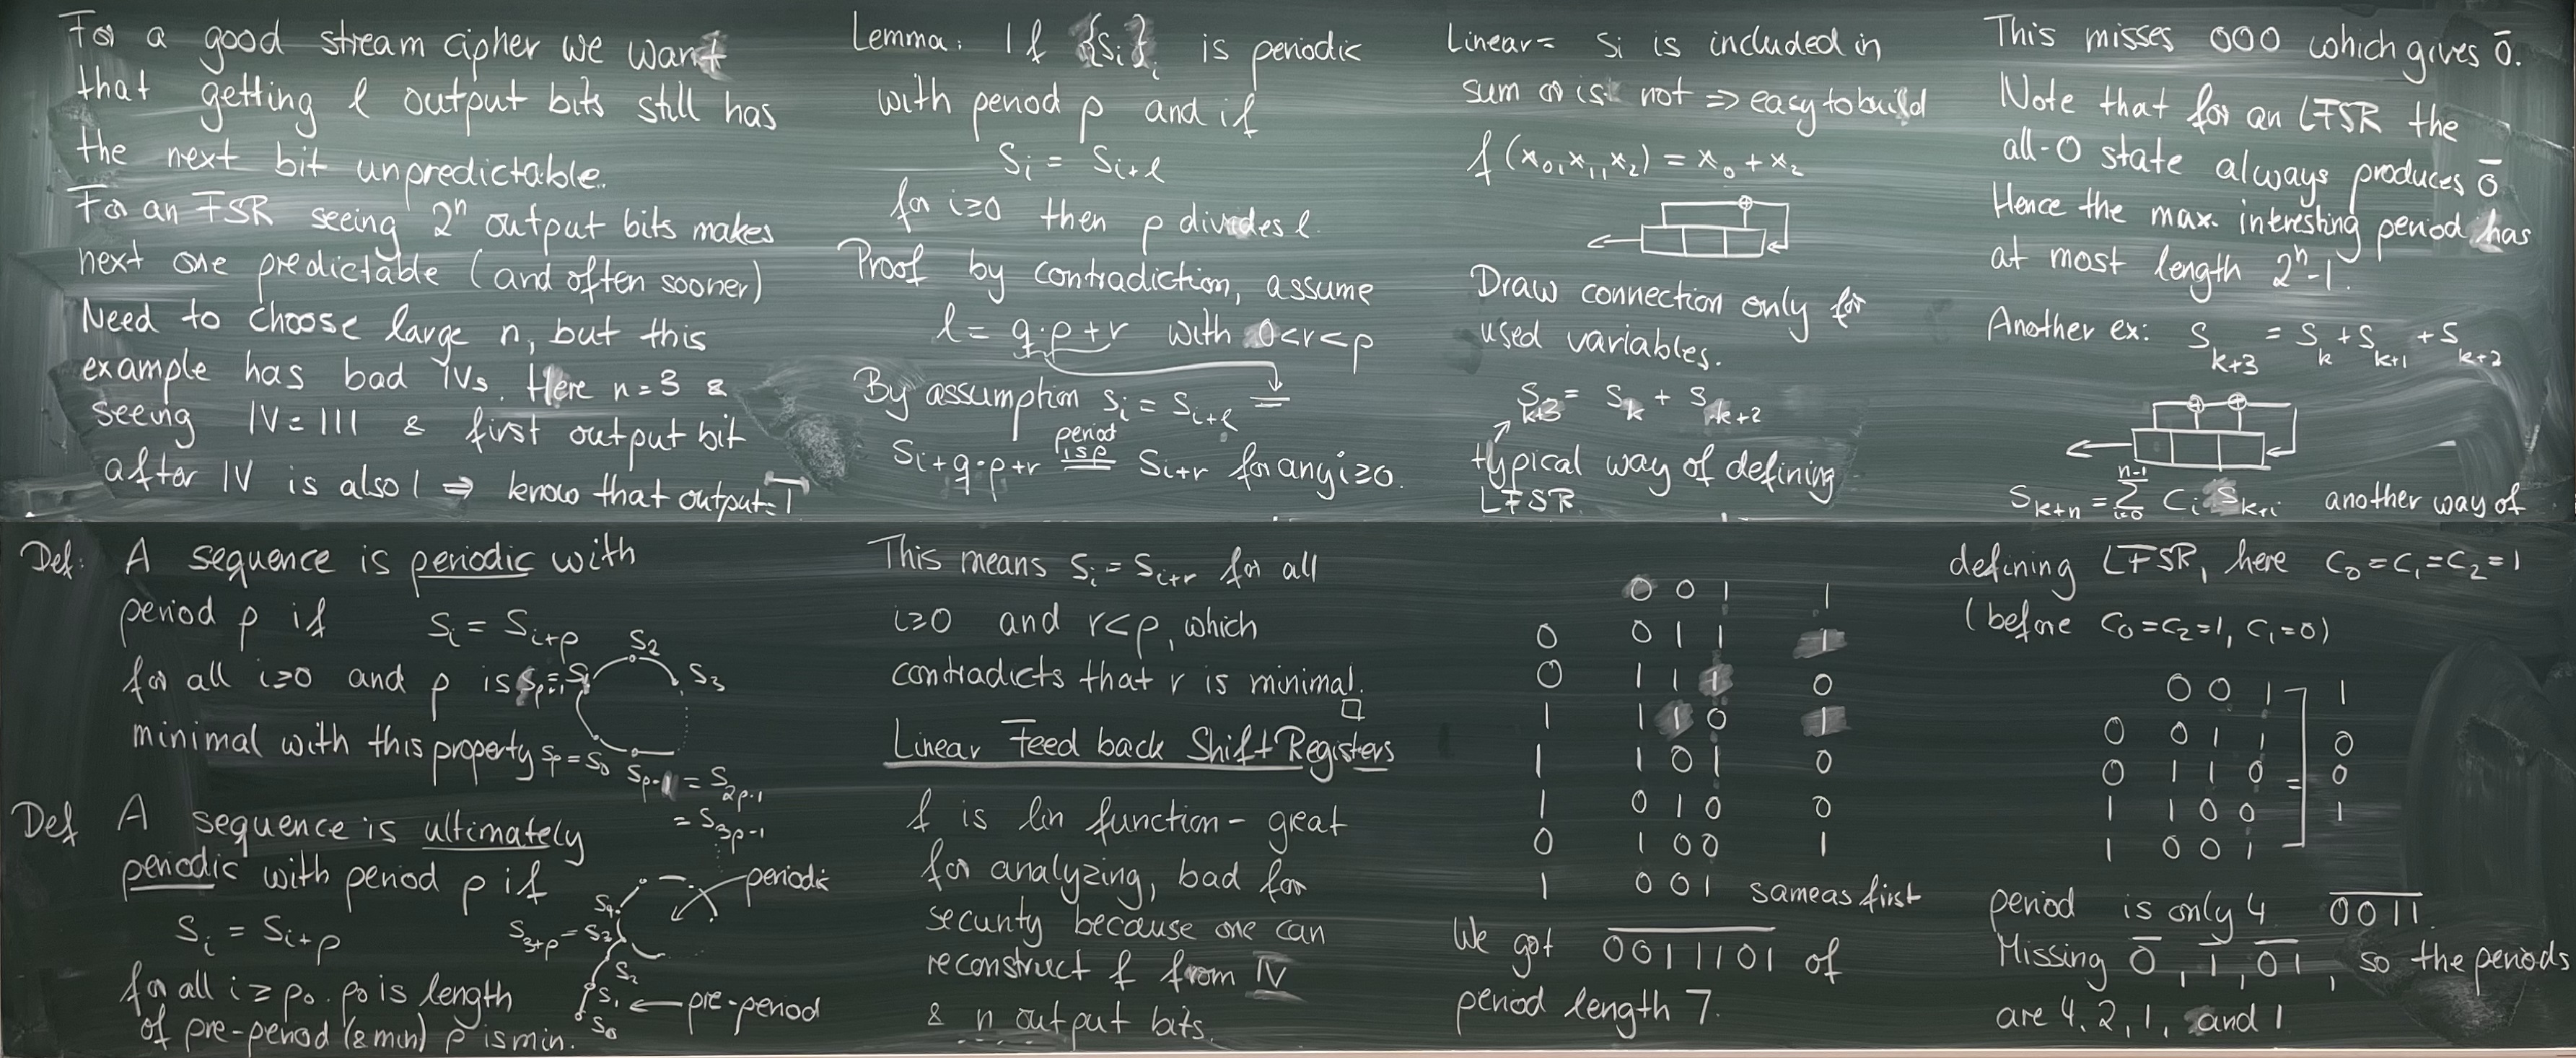 For a good stream cipher we want
that getting l output bits still has
the next bit unpredictable.
For an FSR seeing 2^n output bits makes
next one predictable (and often sooner)
Need to choose large n, but this
example has bad IVs. Here n=3 &
seeing IV=111 & first output bit
after IV is also 1 ⇒ know that output=1̅
Def: A sequence is periodic with
period p if s_i = s_{i+p}
for all i≥0 and p is
minimal with this property
s_2
s_3
s_p = s_0
s_{p-1} = s_{2p-1}
= s_{3p-1}
Def A sequence is ultimately
periodic with period p if
s_i = s_{i+p}
for all i ≥ p_0. p_0 is length
of pre-period (& min) p is min.
periodic
s_4
s_{3+p} = s_3
s_2
s_1 ← pre-period
s_0
Lemma: If {s_i}_i is periodic
with period p and if
s_i = s_{i+l}
for i≥0 then p divides l.
Proof by contradiction, assume
l = q·p+r with 0<r<p
By assumption s_i = s_{i+l} =
s_{i+q·p+r} = s_{i+r} for any i≥0.
period is p
This means s_i = s_{i+r} for all
i≥0 and r<p, which
contradicts that r is minimal.
□
Linear Feed back Shift Registers
f is lin function - great
for analyzing, bad for
security because one can
reconstruct f from IV
& n output bits.
Linear = s_i is included in
sum or is not ⇒ easy to build
f(x_0,x_1,x_2) = x_0 + x_2
Draw connection only for
used variables.
s_{k+3} = s_k + s_{k+2}
typical way of defining
LFSR.
0 0 1 1
0 0 1 1 1
0 1 1 1 0
1 1 1 0 1
1 1 0 1 0
1 0 1 0 0
0 1 0 0 1
1 0 0 1 same as first
We got 0011101 of
period length 7.
This misses 000 which gives 0̅.
Note that for an LFSR the
all-0 state always produces 0̅
Hence the max. interesting period has
at most length 2^n-1.
Another ex: s_{k+3} = s_k + s_{k+1} + s_{k+2}
s_{k+n} = Σ_{i=0}^{n-1} c_i s_{k+i} another way of
defining LFSR, here c_0=c_1=c_2=1
(before c_0=c_2=1, c_1=0)
0 0 1 1
0 0 1 1 0
0 1 1 0 0
1 1 0 0 1
1 0 0 1
period is only 4 0011.
Missing 0̅, 1̅, 01, so the periods
are 4, 2, 1, and 1